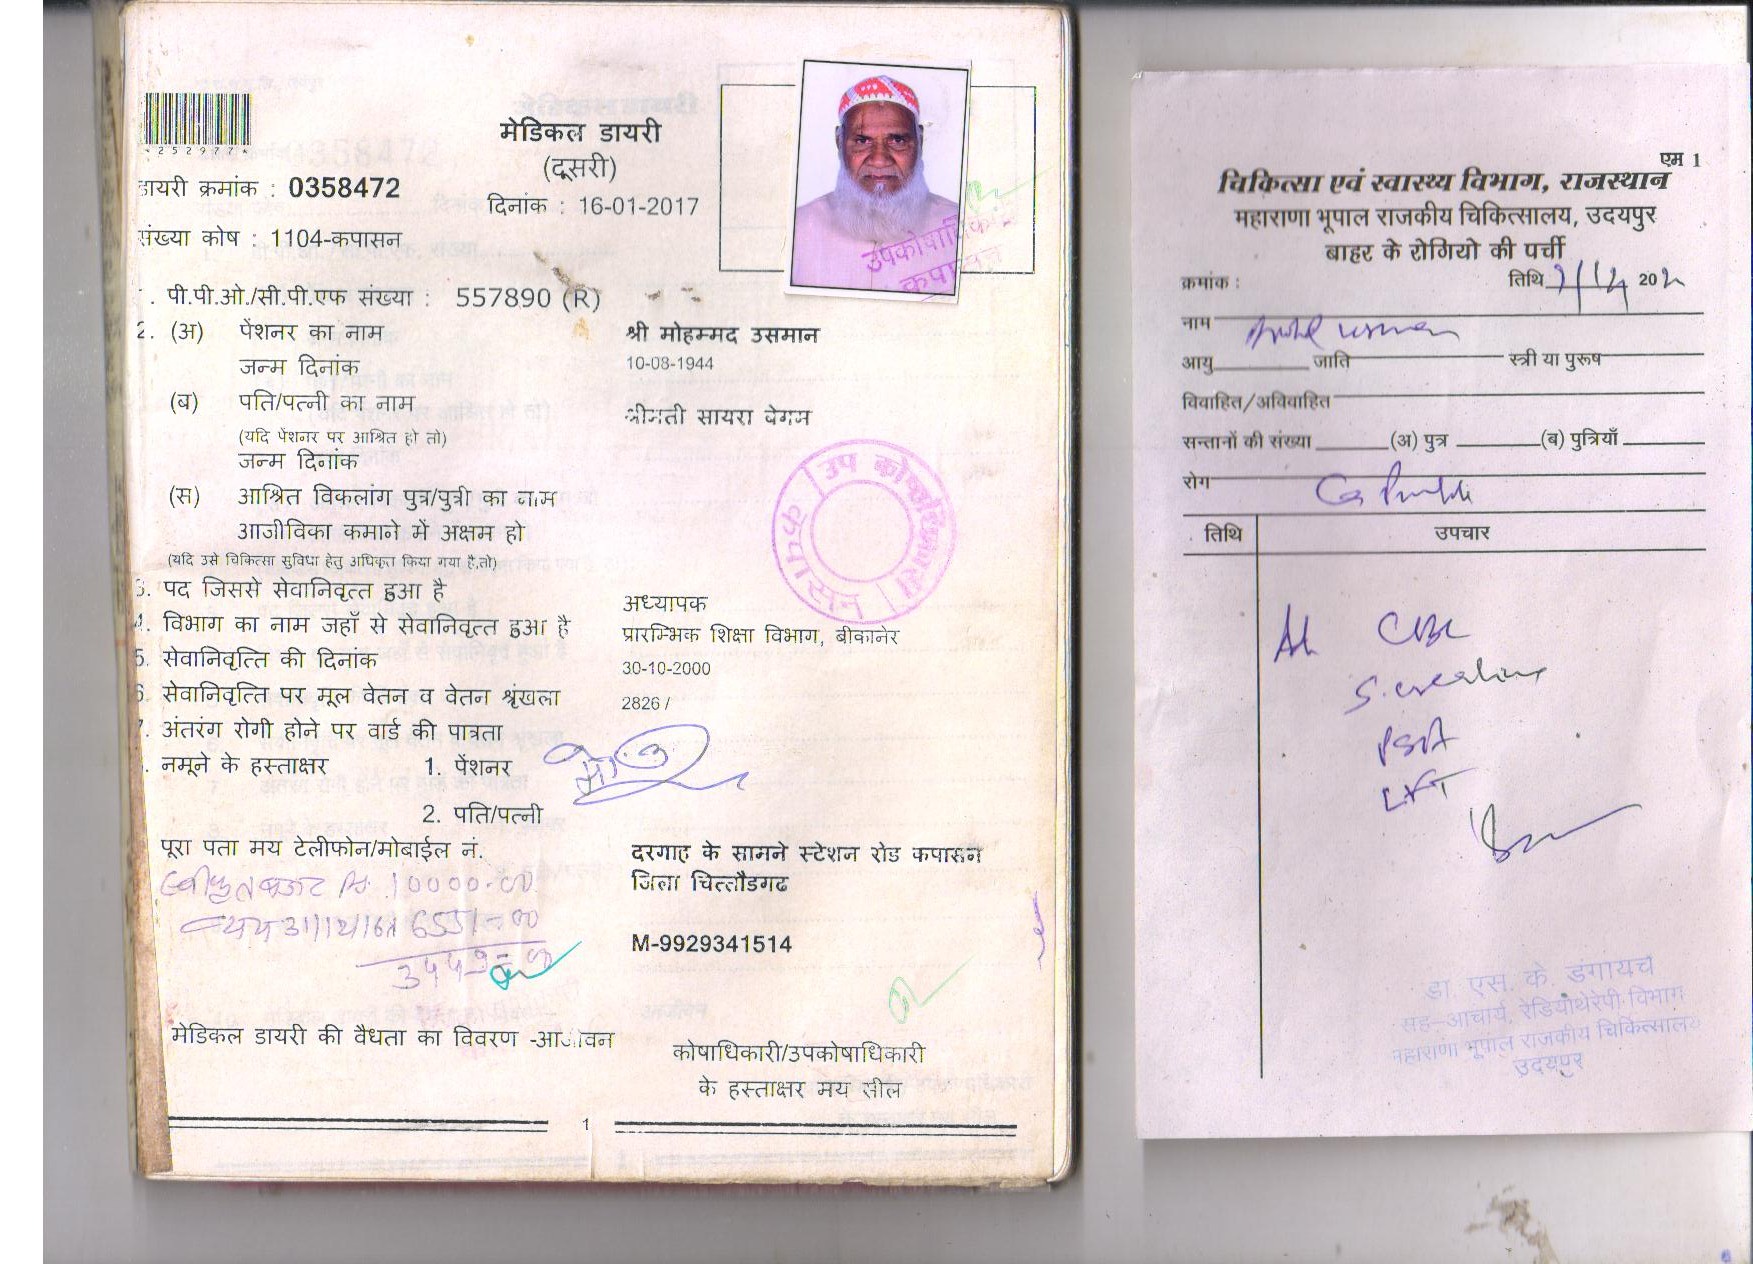 *252977*
मेडिकल डायरी
(दूसरी)
डायरी क्रमांक : 0358472
दिनांक : 16-01-2017
संख्या कोष : 1104-कपासन
उपकोषाधिकारी
कपासन
. पी.पी.ओ./सी.पी.एफ संख्या : 557890 (R)
2. (अ) पेंशनर का नाम श्री मोहम्मद उसमान
जन्म दिनांक 10-08-1944
(ब) पति/पत्नी का नाम श्रीमती सायरा बेगम
(यदि पेंशनर पर आश्रित हो तो)
जन्म दिनांक
(स) आश्रित विकलांग पुत्र/पुत्री का नाम
आजीविका कमाने में अक्षम हो
(यदि उसे चिकित्सा सुविधा हेतु अधिकृत किया गया है,तो)
उप कोषाधिकारी
कपासन
3. पद जिससे सेवानिवृत्त हुआ है अध्यापक
4. विभाग का नाम जहाँ से सेवानिवृत्त हुआ है प्रारम्भिक शिक्षा विभाग, बीकानेर
5. सेवानिवृत्ति की दिनांक 30-10-2000
6. सेवानिवृत्ति पर मूल वेतन व वेतन श्रृंखला 2826 /
7. अंतरंग रोगी होने पर वार्ड की पात्रता
. नमूने के हस्ताक्षर 1. पेंशनर
2. पति/पत्नी
पूरा पता मय टेलीफोन/मोबाईल नं. दरगाह के सामने स्टेशन रोड कपासन
जिला चित्तौडगढ
10000-00
31/12/16 6551=00
3449=00
M-9929341514
मेडिकल डायरी की वैधता का विवरण -आजीवन
कोषाधिकारी/उपकोषाधिकारी
के हस्ताक्षर मय सील
1
एम 1
चिकित्सा एवं स्वास्थ्य विभाग, राजस्थान
महाराणा भूपाल राजकीय चिकित्सालय, उदयपुर
बाहर के रोगियो की पर्ची
क्रमांक : तिथि 20
नाम usman
आयु जाति स्त्री या पुरूष
विवाहित/अविवाहित
सन्तानों की संख्या (अ) पुत्र (ब) पुत्रियाँ
रोग Ca
तिथि उपचार
CBC
S. creatinine
PSA
LFT
डा. एस. के. डंगायच
सह-आचार्य, रेडियोथेरेपी विभाग
महाराणा भूपाल राजकीय चिकित्सालय
उदयपुर